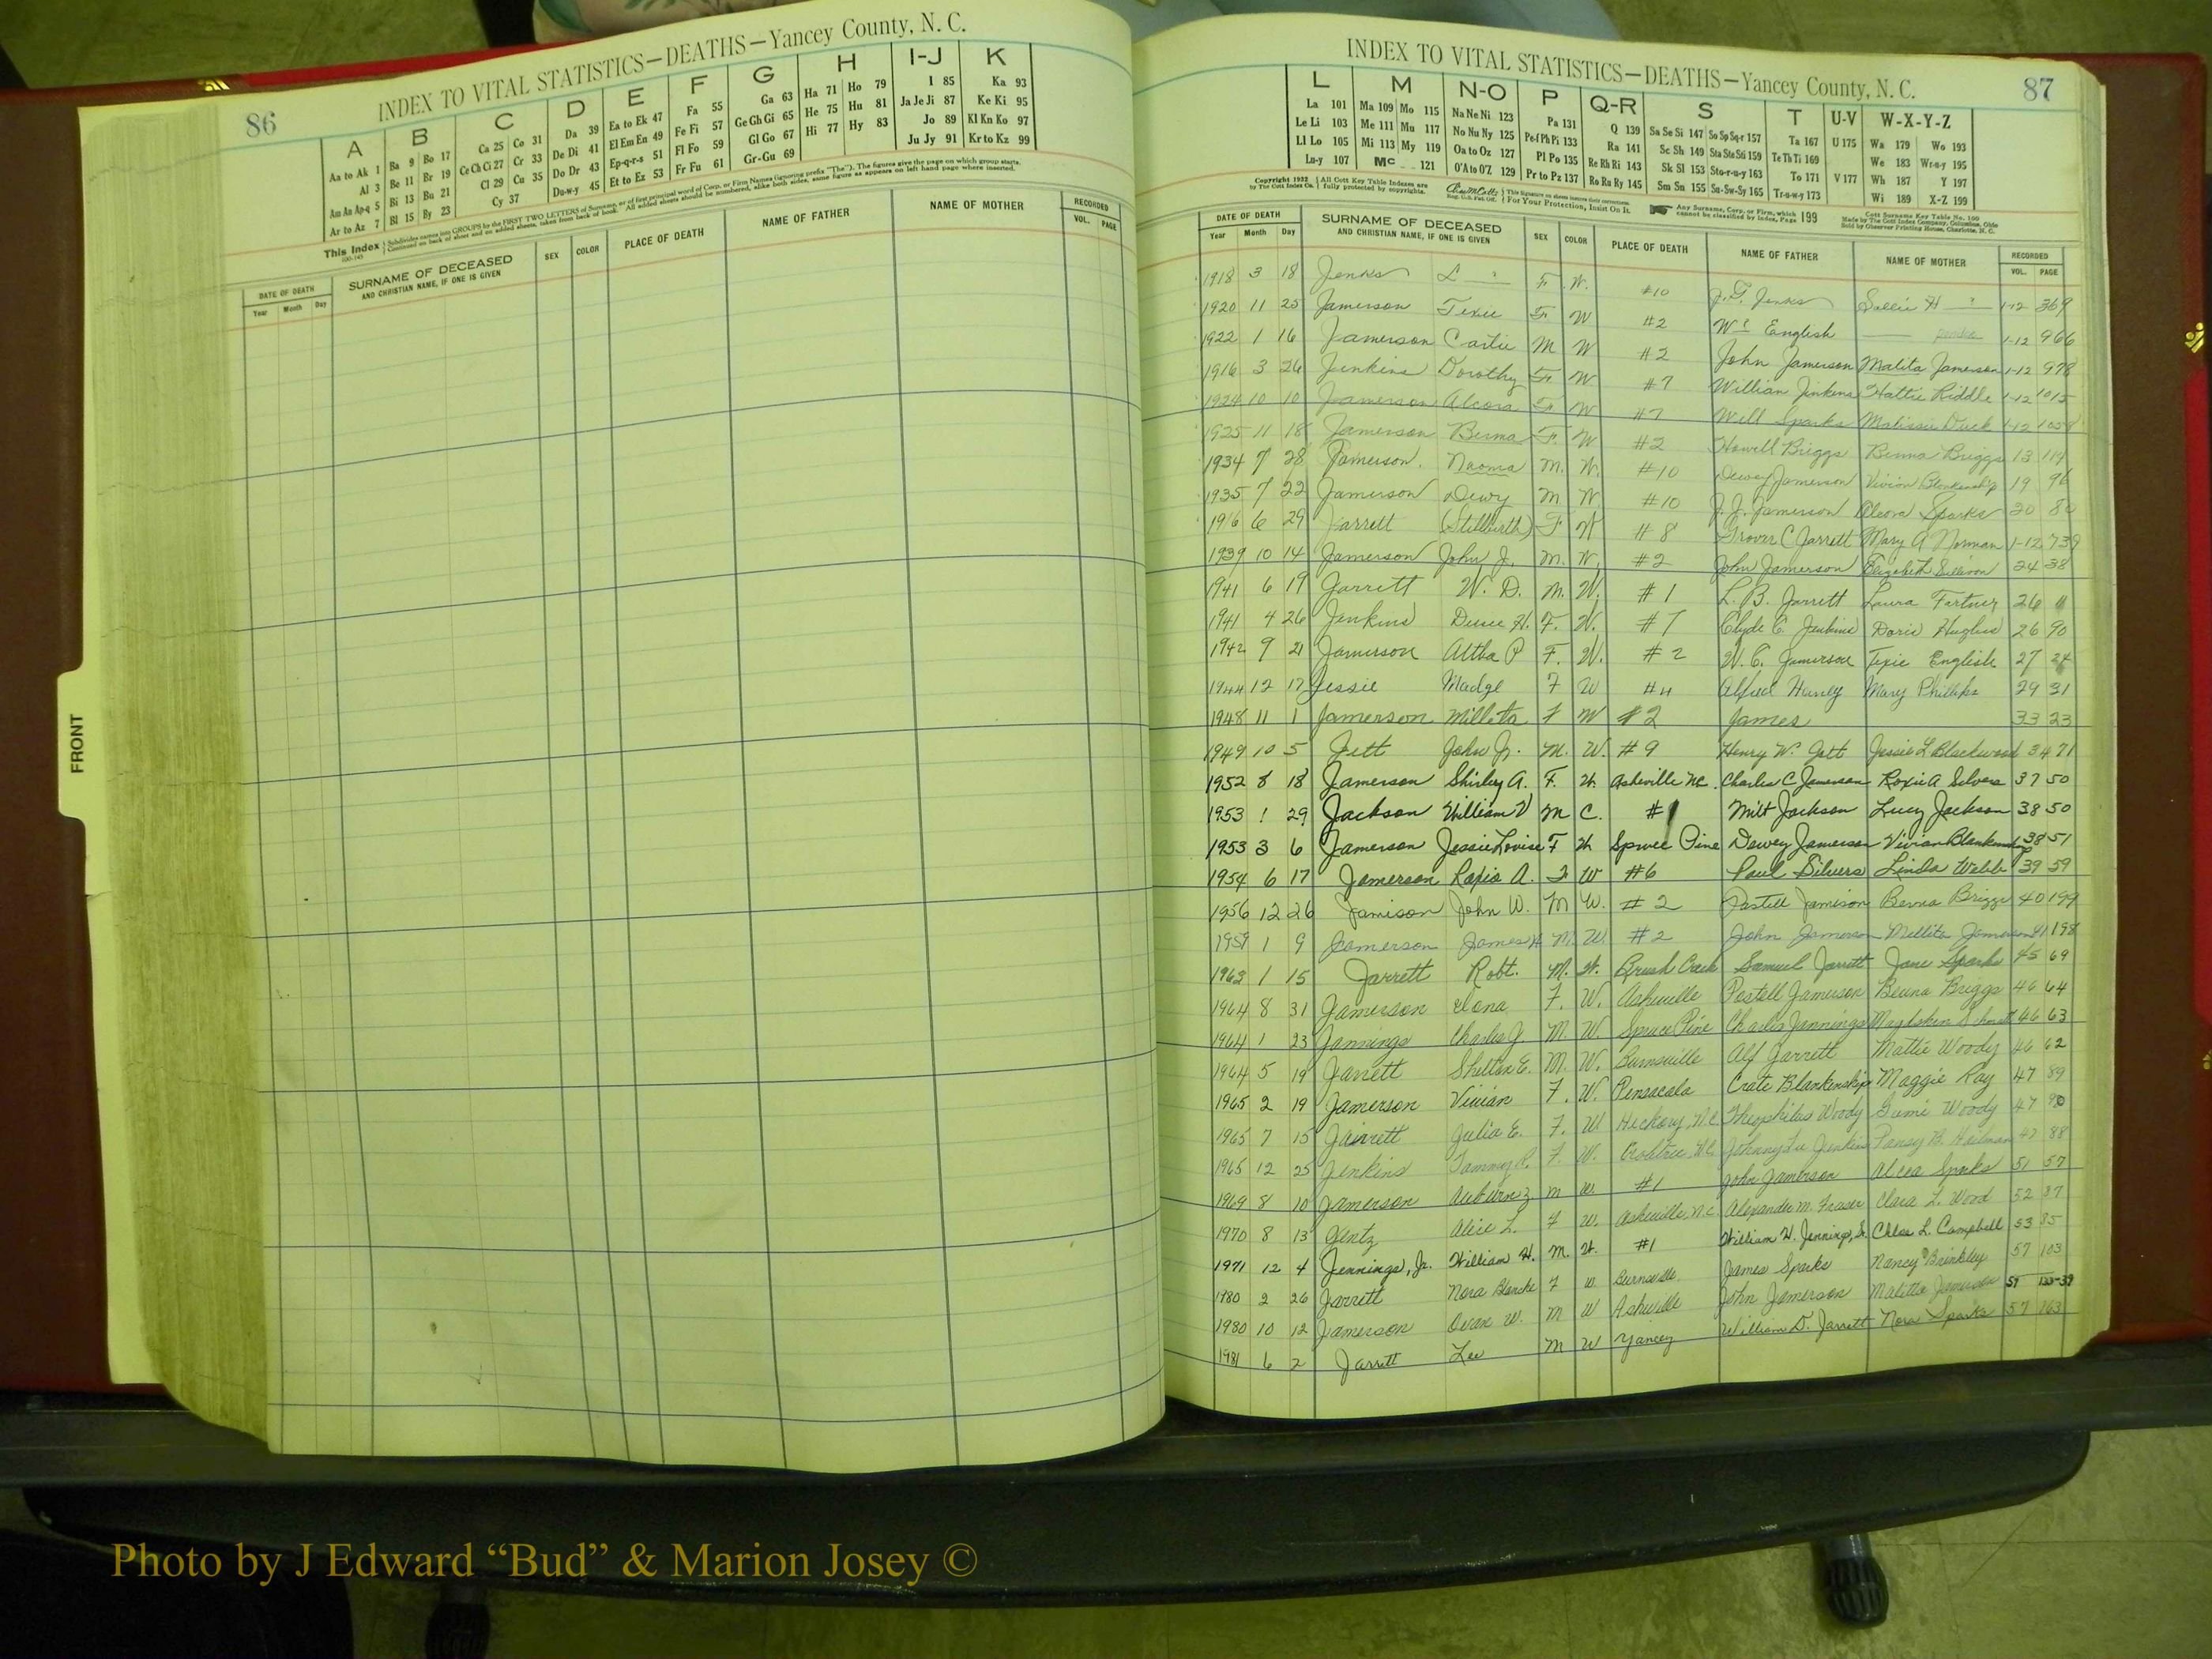 86
INDEX TO VITAL STATISTICS—DEATHS—Yancey County, N. C.
A B C D E F G H I-J K
Aa to Ak 1 Ba 9 Bo 17 Ca 25 Co 31 Da 39 Ea to Ek 47 Fa 55 Ga 63 Ha 71 Ho 79 I 85 Ka 93
Al 3 Be 11 Br 19 Ce Ch Ci 27 Cr 33 De Di 41 El Em En 49 Fe Fi 57 Ge Gh Gi 65 He 75 Hu 81 Ja Je Ji 87 Ke Ki 95
Am An Ap-q 5 Bi 13 Bu 21 Cl 29 Cu 35 Do Dr 43 Ep-q-r-s 51 Fl Fo 59 Gl Go 67 Hi 77 Hy 83 Jo 89 Kl Kn Ko 97
Ar to Az 7 Bl 15 By 23 Cy 37 Du-w-y 45 Et to Ez 53 Fr Fu 61 Gr-Gu 69 Ju Jy 91 Kr to Kz 99
This Index
Subdivides names into GROUPS by the FIRST TWO LETTERS of Surname, or of first principal word of Corp. or Firm Names (ignoring prefix "The"). The figures give the page on which group starts.
Continued on back of sheet and on added sheets, taken from back of book. All added sheets should be numbered, alike both sides, same figure as appears on left hand page where inserted.
DATE OF DEATH
Year Month Day
SURNAME OF DECEASED
AND CHRISTIAN NAME, IF ONE IS GIVEN
SEX COLOR PLACE OF DEATH NAME OF FATHER NAME OF MOTHER
RECORDED
VOL. PAGE
FRONT
INDEX TO VITAL STATISTICS—DEATHS—Yancey County, N. C.
87
L M N-O P Q-R S T U-V W-X-Y-Z
La 101 Ma 109 Mo 115 Na Ne Ni 123 Pa 131 Q 139 Sa Se Si 147 So Sp Sq-r 157 Ta 167 U 175 Wa 179 Wo 193
Le Li 103 Me 111 Mu 117 No Nu Ny 125 Pe-f Ph Pi 133 Ra 141 Sc Sh 149 Sta Ste Sti 159 Te Th Ti 169 We 183 Wr-u-y 195
Ll Lo 105 Mi 113 My 119 Oa to Oz 127 Pl Po 135 Re Rh Ri 143 Sk Sl 153 Sto-r-u-y 163 To 171 V 177 Wh 187 Y 197
Lu-y 107 Mc 121 O'A to O'Z 129 Pr to Pz 137 Ro Ru Ry 145 Sm Sn 155 Su-Sw-Sy 165 Tr-u-w-y 173 Wi 189 X-Z 199
Copyright 1922 by The Cott Index Co. All Cott Key Table Indexes are fully protected by copyrights. For Your Protection, Insist On It.
Any Surname, Corp. or Firm, which cannot be classified by Index, Page 199
Cott Surname Key Table No. 100
Made by The Cott Index Company, Columbus, Ohio
Sold by Observer Printing House, Charlotte, N. C.
DATE OF DEATH
Year Month Day
SURNAME OF DECEASED
AND CHRISTIAN NAME, IF ONE IS GIVEN
SEX COLOR PLACE OF DEATH NAME OF FATHER NAME OF MOTHER
RECORDED
VOL. PAGE
1918 3 18 Jenks L F. W. #10 J.G. Jenks Sallie H 1-12 369
1920 11 25 Jamerson Texie F W #2 Wm English 1-12 966
1922 1 16 Jamerson Cartie M W #2 John Jamerson Malita Jamerson 1-12 978
1916 3 26 Jenkins Dorothy F W #7 William Jenkins Hattie Riddle 1-12 1015
1924 10 10 Jamerson Alcora F W #7 Will Sparks Malissie Duck 1-12
1925 11 18 Jamerson Berna F. W #2 Howell Briggs Benna Briggs 13 114
1934 7 28 Jamerson. Naoma M. W. #10 Dewey Jamerson Vivian Blankenship 19 96
1935 7 22 Jamerson Dewy M W. #10 J. J. Jamerson Alcora Sparks 20 80
1916 6 29 Jarrett (Stillbirth) F W #8 Grover C Jarrett Mary A Norman 1-12 739
1939 10 14 Jamerson John J. M. W. #2 John Jamerson Elizabeth Sullivan 24 38
1941 6 19 Jarrett W. D. M. W. #1 L. B. Jarrett Laura Fortner 26 11
1941 4 26 Jenkins H. F. W. #7 Clyde C. Jenkins Doris Hughes 26 90
1942 9 21 Jamerson Altha P F. W. #2 W. C. Jamerson Texie English 27 24
1944 12 17 Jessie Madge F W #4 Alfred Haney Mary Phillips 29 31
1948 11 1 Jamerson Millita F W #2 James 33 23
1949 10 5 Jett John Jr. M. W. #9 Henry W. Jett Jessie L Blackwood 34 71
1952 8 18 Jamerson Shirley A. F. W. Asheville NC. Charles C Jamerson Roxie A Silvers 37 50
1953 1 29 Jackson William V M C. #1 Milt Jackson Lucy Jackson 38 50
1953 3 6 Jamerson Jessie Louise F W Spruce Pine Dewey Jamerson Vivian Blankenship 38 51
1954 6 17 Jamerson Roxie A. F W #6 Paul Silvers Linda Webb 39 59
1956 12 26 Jamison John W. M W. #2 Pastell Jamison Benna Briggs 40 199
1959 1 9 Jamerson James H M. W. #2 John Jamerson Mellita Jamerson 41 198
1963 1 15 Jarrett Robt. M. W. Brush Creek Samuel Jarrett Jane Sparks 45 69
1964 8 31 Jamerson Iona F. W. Asheville Postell Jamerson Benna Briggs 46 64
1964 1 23 Jennings Charles J. M. W. Spruce Pine Charles Jennings 46 63
1964 5 19 Jarrett Shelton E. M. W. Burnsville Alf Jarrett Mattie Woody 46 62
1965 2 19 Jamerson Vivian F. W. Pensacola Crate Blankenship Maggie Ray 47 89
1965 7 15 Jarrett Julia E. F. W Hickory, N.C. Theophilus Woody Woody 47 90
1965 12 25 Jenkins Tammy R. F. W. Crabtree, N.C. Johnny Lee Jenkins Pansy 47 88
1969 8 10 Jamerson Auburn Z m w #1 John Jamerson Alcea Sparks 51 57
1970 8 13 Gentz Alice L. F W. Asheville, N.C. Alexander M. Fraser Clara L. Wood 52 87
1971 12 4 Jennings, Jr. William H. M. W. #1 William H. Jennings, Sr. Chloe L. Campbell 53 85
1980 2 26 Jarrett Nora Blanche F W Burnsville James Sparks Nancy Brinkley 57 103
1980 10 12 Jamerson Ovan W. M W Asheville John Jamerson Malitta Jamerson 57 133-39
1981 6 2 Jarrett Lee M W Yancey William D. Jarrett Nora Sparks 57 163
Photo by J Edward “Bud” & Marion Josey ©